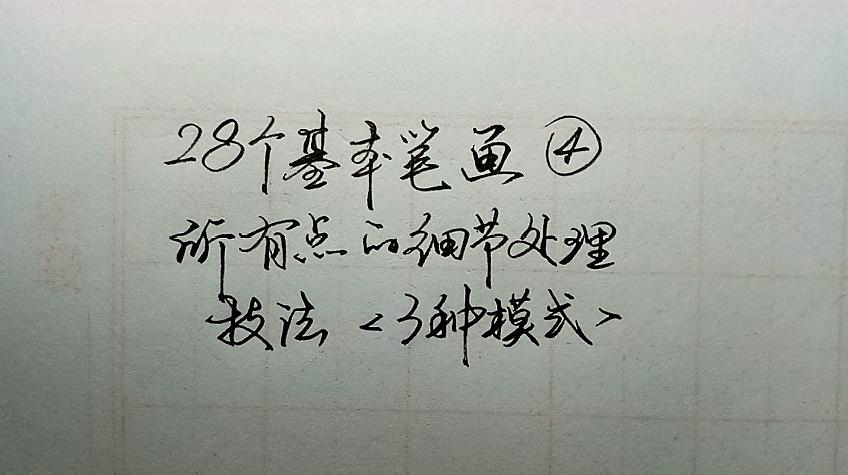 28个基本笔画④
所有点的细节处理
技法<3种模式>